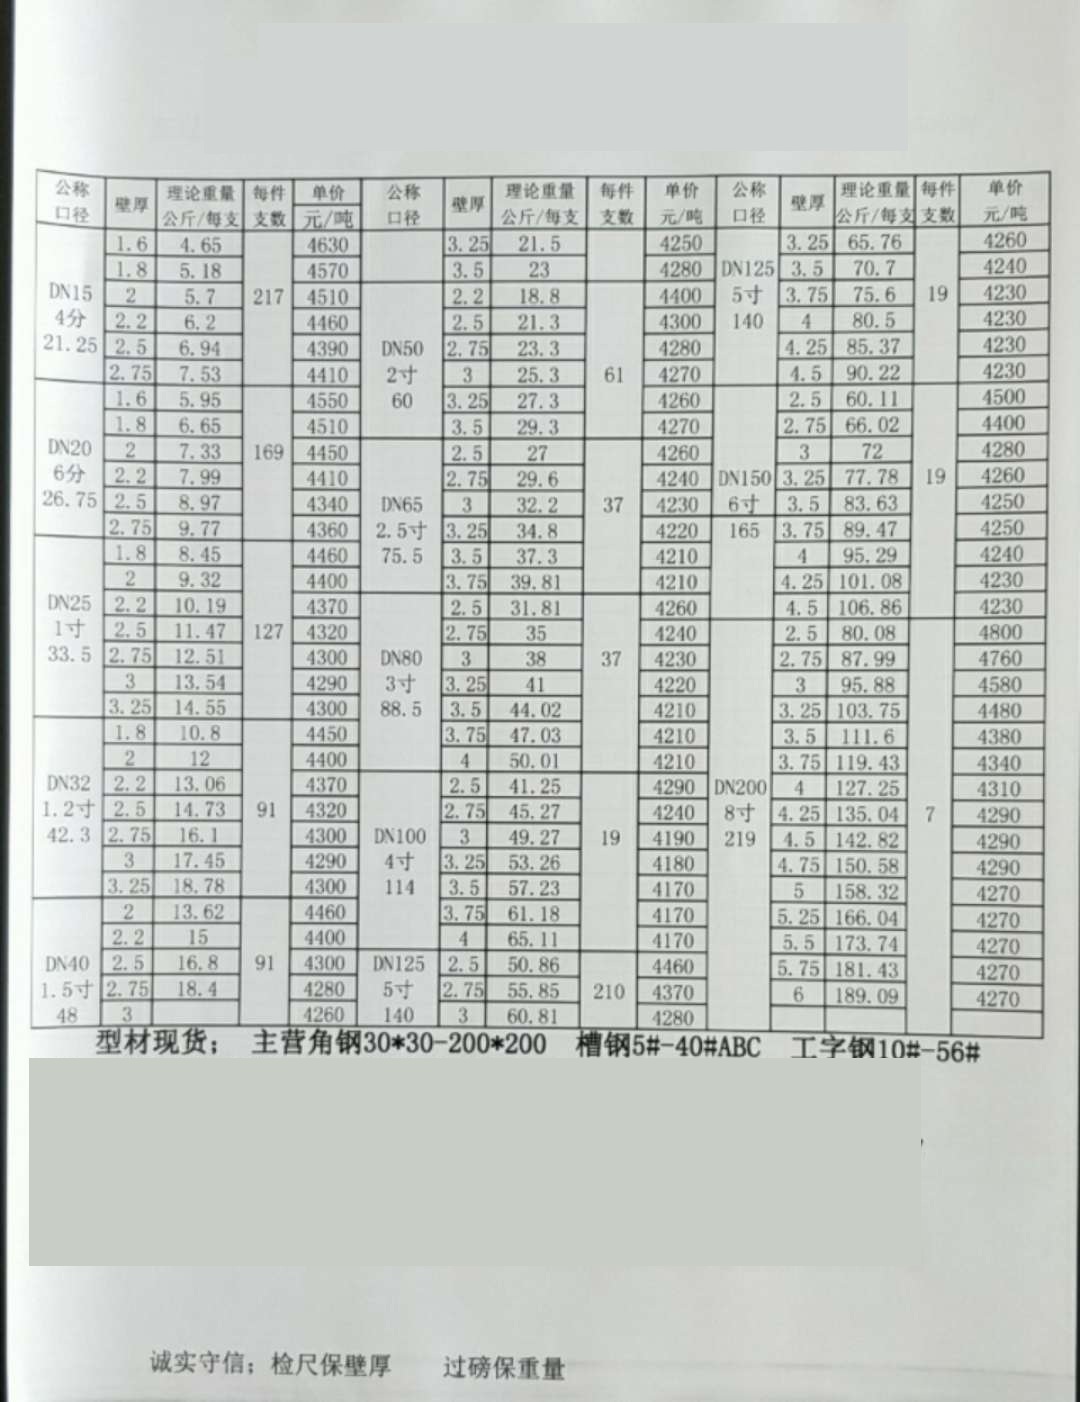 公称 壁厚 理论重量 每件 单价 公称 壁厚 理论重量 每件 单价 公称 壁厚 理论重量 每件 单价
口径 公斤/每支 支数 元/吨 口径 公斤/每支 支数 元/吨 口径 公斤/每支 支数 元/吨
1.6 4.65 4630 3.25 21.5 4250 3.25 65.76 4260
1.8 5.18 4570 3.5 23 4280 DN125 3.5 70.7 4240
DN15 2 5.7 217 4510 2.2 18.8 4400 5寸 3.75 75.6 19 4230
4分 2.2 6.2 4460 2.5 21.3 4300 140 4 80.5 4230
21.25 2.5 6.94 4390 DN50 2.75 23.3 4280 4.25 85.37 4230
2.75 7.53 4410 2寸 3 25.3 61 4270 4.5 90.22 4230
1.6 5.95 4550 60 3.25 27.3 4260 2.5 60.11 4500
1.8 6.65 4510 3.5 29.3 4270 2.75 66.02 4400
DN20 2 7.33 169 4450 2.5 27 4260 3 72 4280
6分 2.2 7.99 4410 2.75 29.6 4240 DN150 3.25 77.78 19 4260
26.75 2.5 8.97 4340 DN65 3 32.2 37 4230 6寸 3.5 83.63 4250
2.75 9.77 4360 2.5寸 3.25 34.8 4220 165 3.75 89.47 4250
1.8 8.45 4460 75.5 3.5 37.3 4210 4 95.29 4240
2 9.32 4400 3.75 39.81 4210 4.25 101.08 4230
DN25 2.2 10.19 4370 2.5 31.81 4260 4.5 106.86 4230
1寸 2.5 11.47 127 4320 2.75 35 4240 2.5 80.08 4800
33.5 2.75 12.51 4300 DN80 3 38 37 4230 2.75 87.99 4760
3 13.54 4290 3寸 3.25 41 4220 3 95.88 4580
3.25 14.55 4300 88.5 3.5 44.02 4210 3.25 103.75 4480
1.8 10.8 4450 3.75 47.03 4210 3.5 111.6 4380
2 12 4400 4 50.01 4210 3.75 119.43 4340
DN32 2.2 13.06 4370 2.5 41.25 4290 DN200 4 127.25 4310
1.2寸 2.5 14.73 91 4320 2.75 45.27 4240 8寸 4.25 135.04 7 4290
42.3 2.75 16.1 4300 DN100 3 49.27 19 4190 219 4.5 142.82 4290
3 17.45 4290 4寸 3.25 53.26 4180 4.75 150.58 4290
3.25 18.78 4300 114 3.5 57.23 4170 5 158.32 4270
2 13.62 4460 3.75 61.18 4170 5.25 166.04 4270
2.2 15 4400 4 65.11 4170 5.5 173.74 4270
DN40 2.5 16.8 91 4300 DN125 2.5 50.86 4460 5.75 181.43 4270
1.5寸 2.75 18.4 4280 5寸 2.75 55.85 210 4370 6 189.09 4270
48 3 4260 140 3 60.81 4280
型材现货; 主营角钢30*30-200*200 槽钢5#-40#ABC 工字钢10#-56#
诚实守信; 检尺保壁厚 过磅保重量